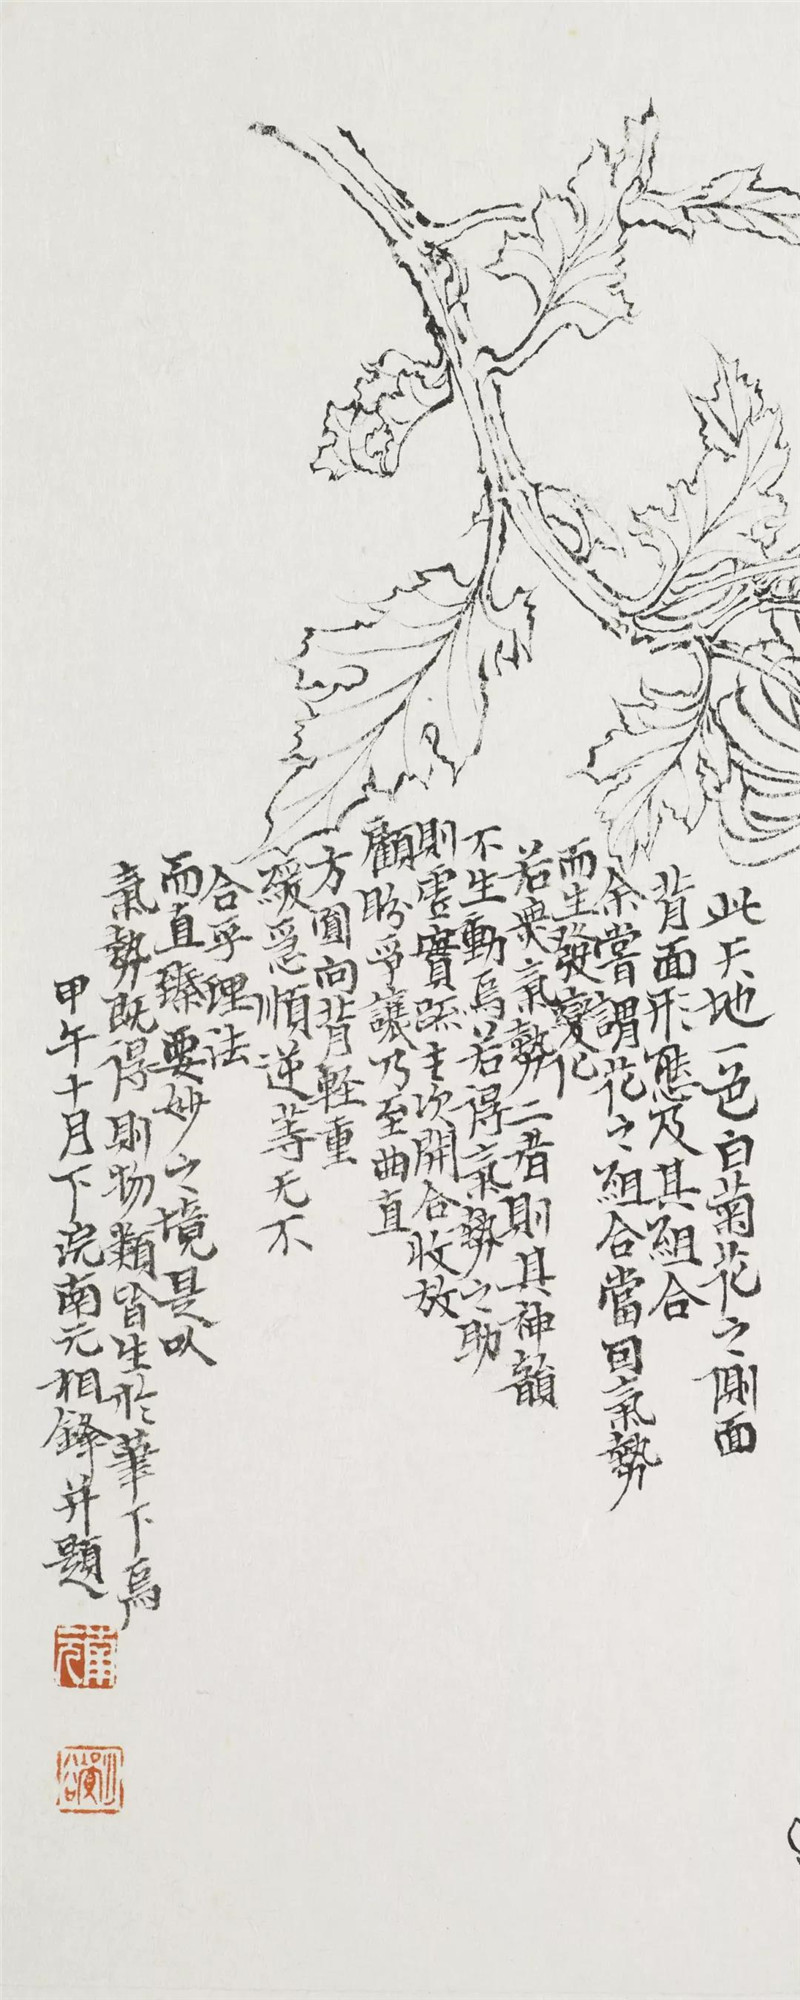 此天地一色白菊花之側面
背面形態及其組合
余嘗謂花之組合當因氣勢
而生發變化
若棄氣勢二者則其神韻
不生動焉若得氣勢之助
則虛實疏主次開合收放
顧盼爭讓乃至曲直
方圓向背輕重
緩急順逆等无不
合乎理法
而直臻要妙之境是以
氣勢既得則物類皆生於筆下焉
甲午十月下浣南元相鋒并題
南元